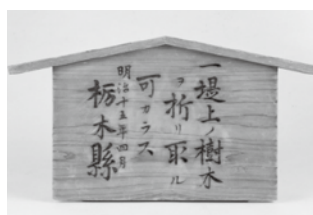 一堤上ノ樹木
ヲ折リ取ル
可カラス
明治十五年四月
栃木縣